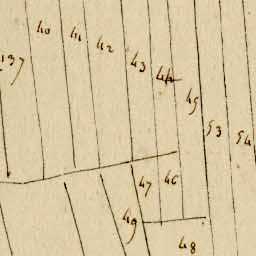 40
41
42
137
43
44
45
53
54
47
46
49
48